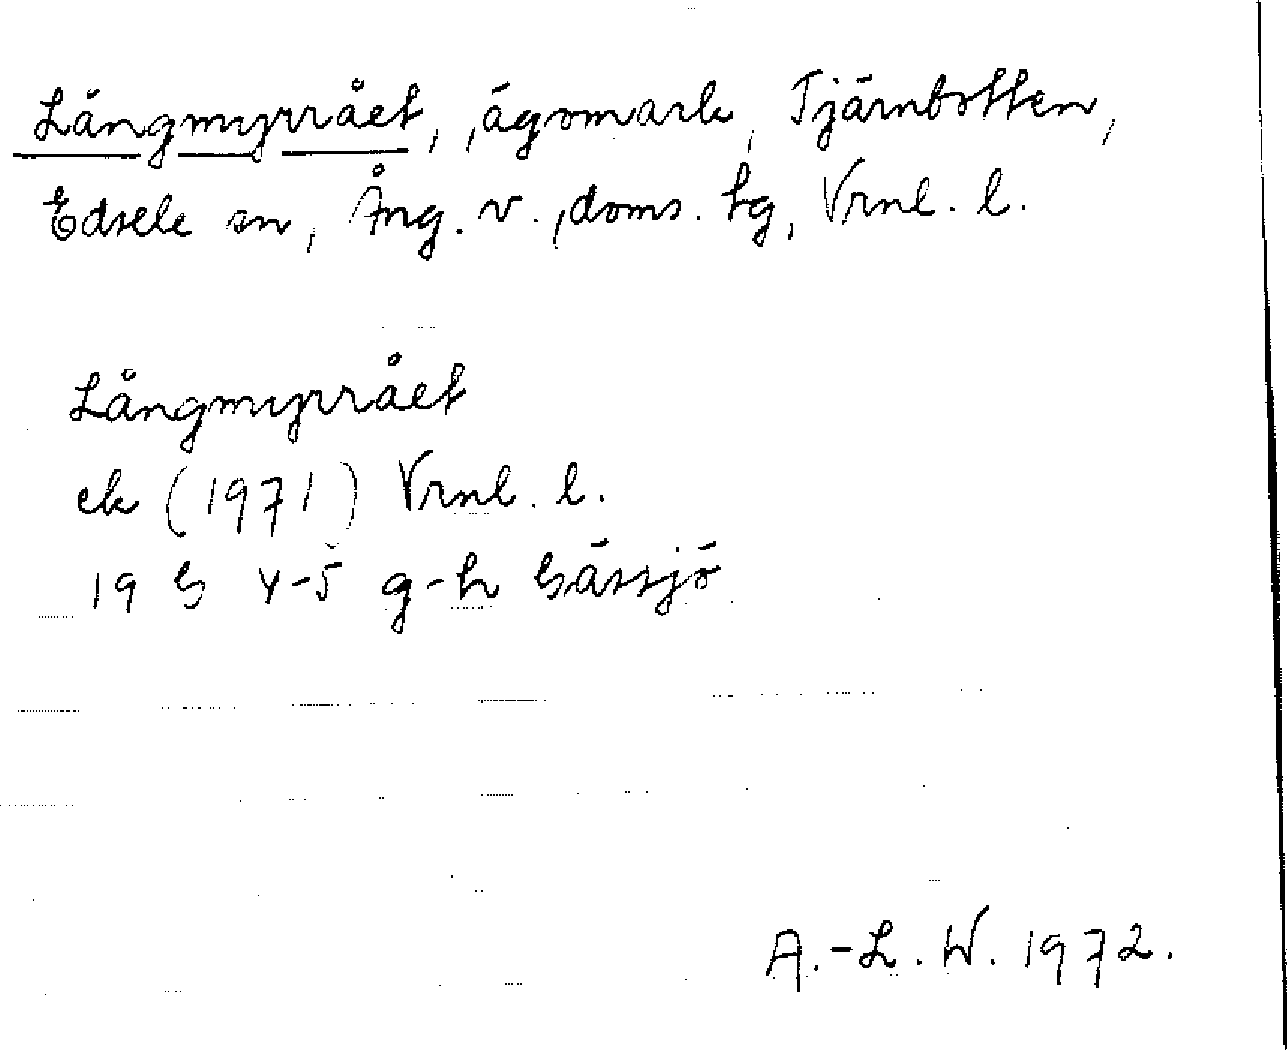 Långmyrråët, ägomark, Tjärnbotten,
Edsele sn, Ång. v. doms. hg, Vrnl. l.
Långmyrråët
ek (1971) Vrnl. l.
19 G 4-5 g-h Gåssjö
A.-L. W. 1972.